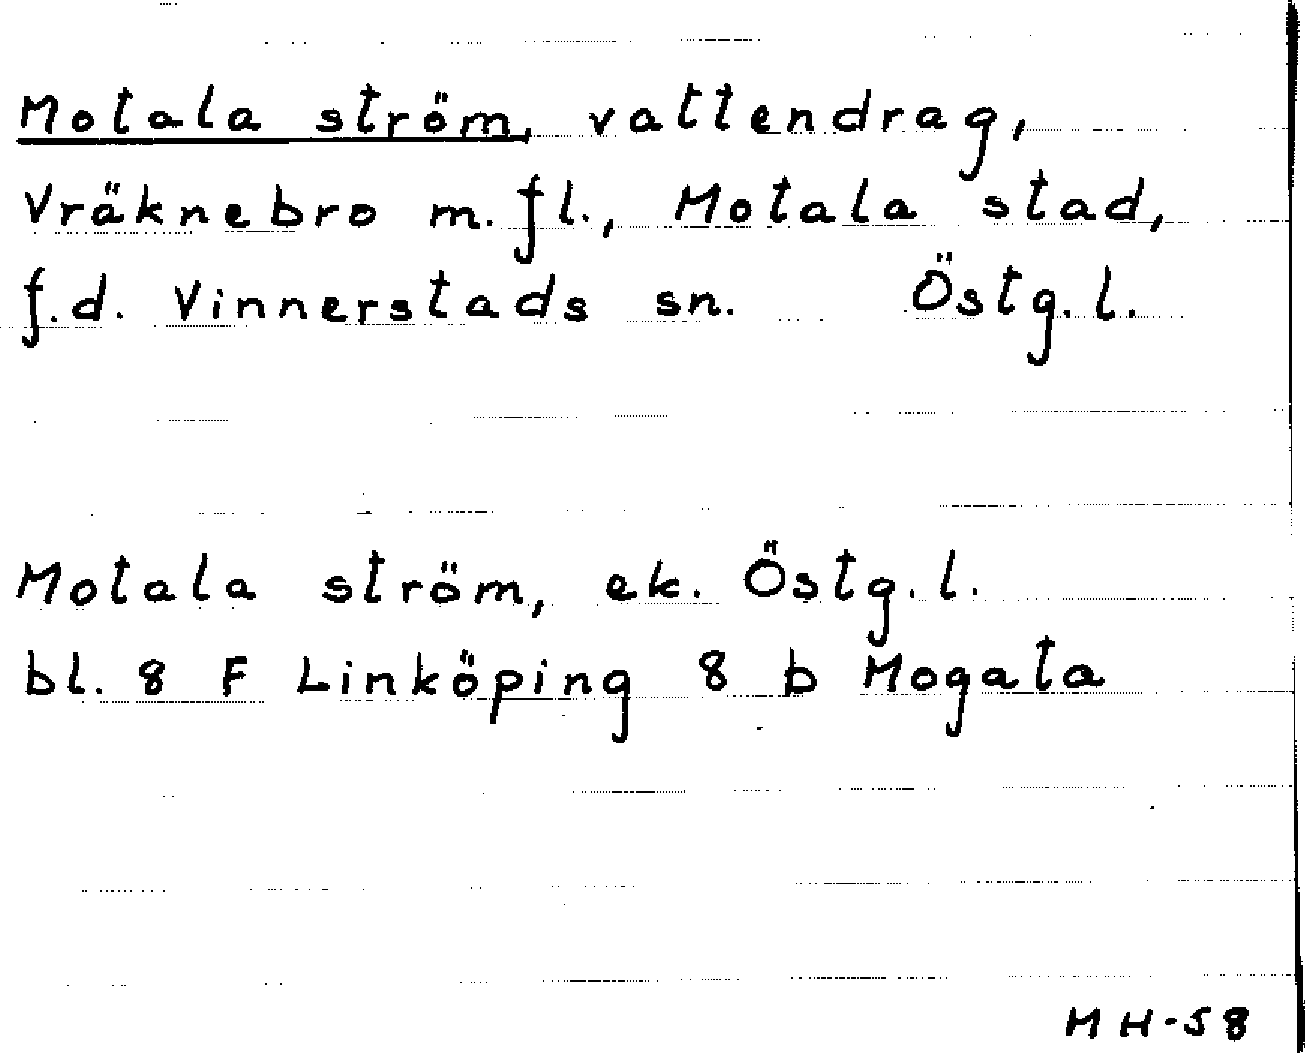 Motala ström, vattendrag,
Vräknebro m.fl., Motala stad,
f.d. Vinnerstads sn. Östg.l.
Motala ström, ek. Östg.l.
bl. 8 F Linköping 8 b Mogata
MH-58